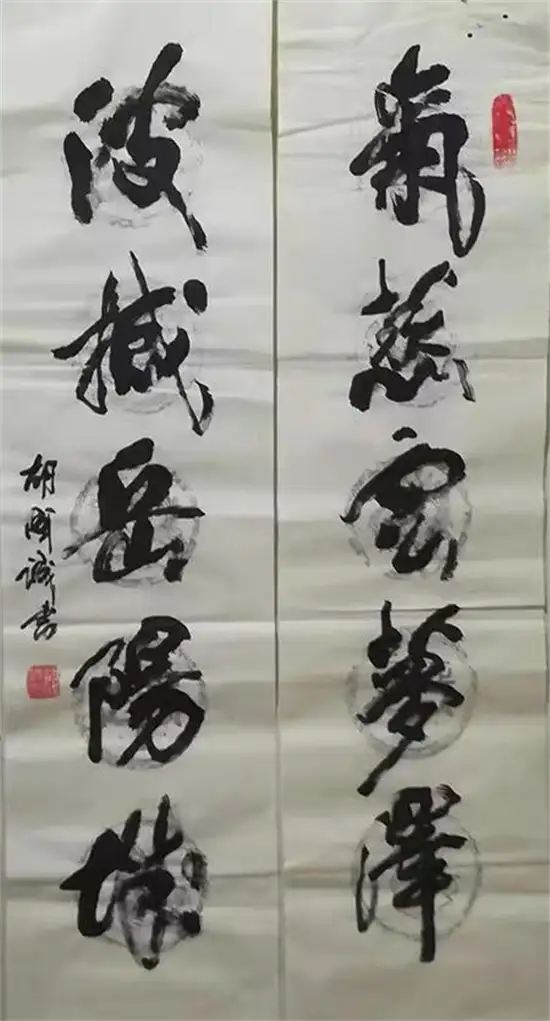 氣蒸雲夢澤
波撼岳陽城
胡成誠書